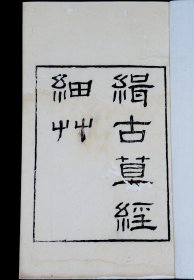 緝古算經
細艸